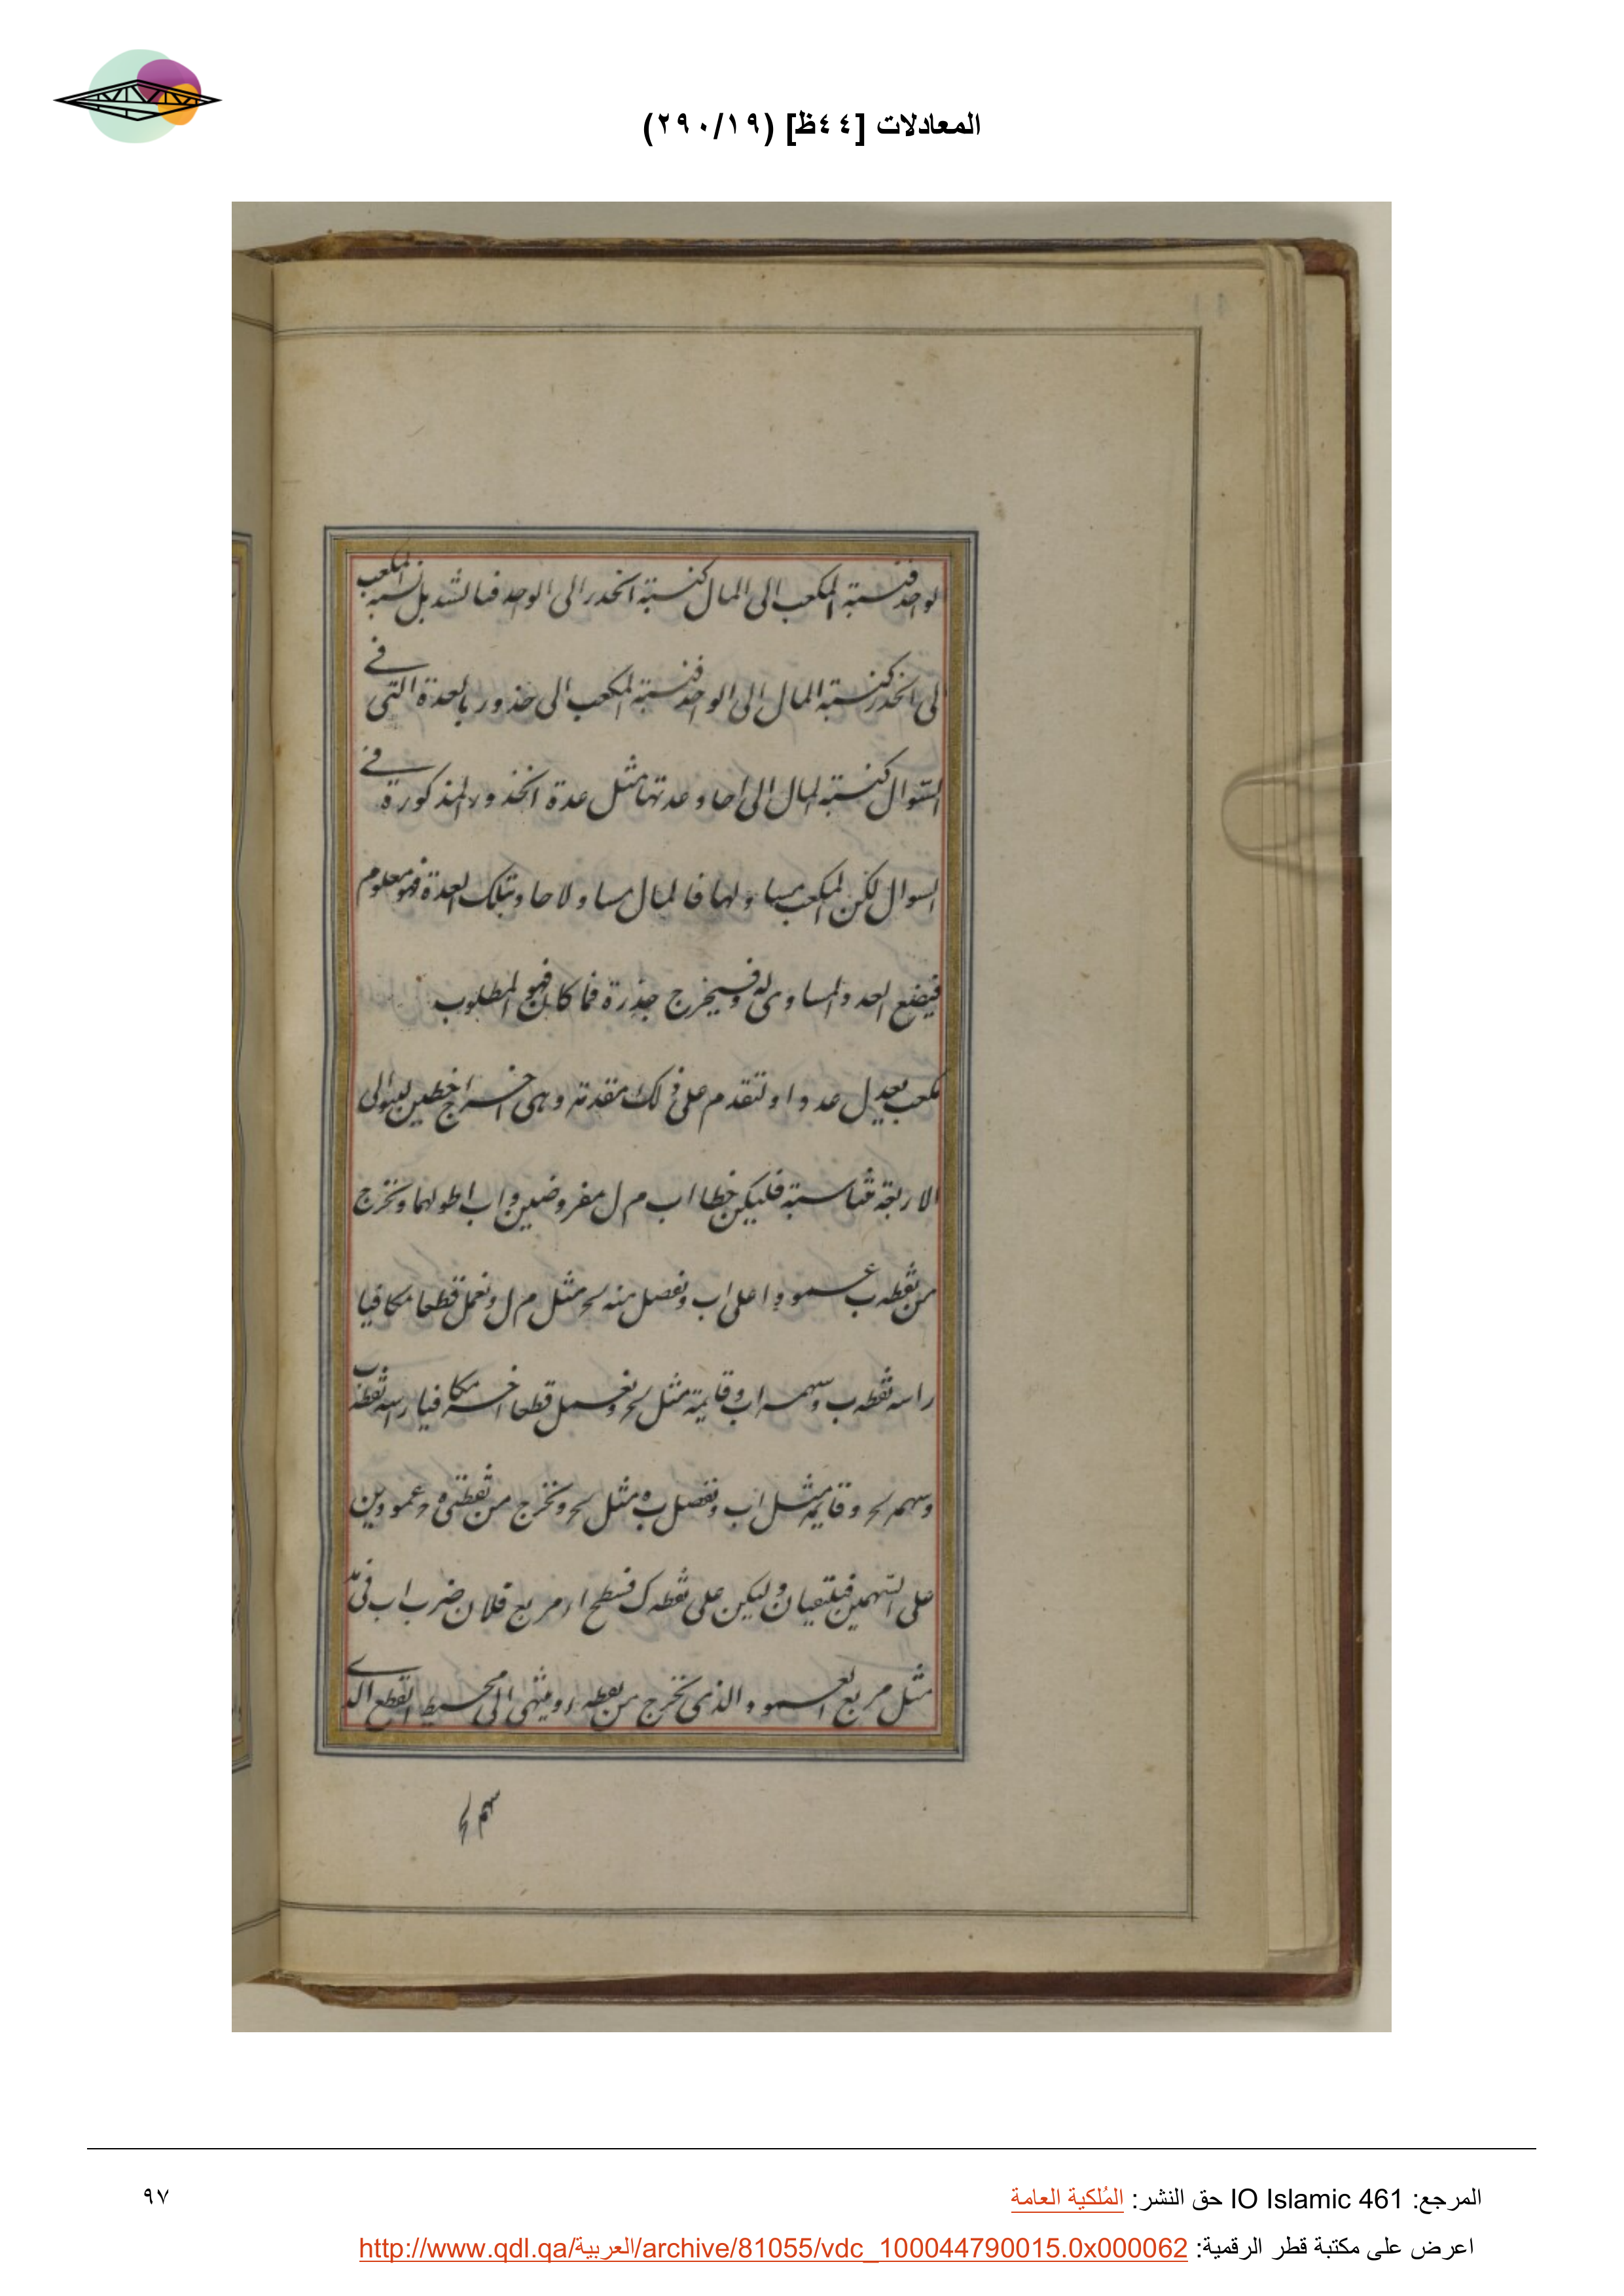 المعادلات [٤٤ظ] (٢٩٠/١٩)
لواحد فنسبة المكعب الى المال كنسبة الجذر الى الواحد فبالتبديل نسبة المكعب
لى الجذر كنسبة المال الى الواحد فنسبة المكعب الى جذور بالعدة التى فے
السوال كنسبة المال الى احاد عدتها مثل عدة الجذور المذكورة فے
السوال لكن المكعب مساو لها فالمال مساو لاحاد بتلك العدة فهو معلوم
فيضع العدد المساوى له وفسيخرج جذرة فما كان فهو المطلوب
مكعب يعدل عددا ولتقدم على ذلك مقدمة وهى اخراج خطين ليتوالى
الاربعة متناسبة فليكن خطا اب م ل مفروضين و اب اطولهما ونخرج
من نقطة ب عمودا على اب ونفصل منه ب‍ح مثل م ل ونعمل قطعا مكافيا
راسه نقطه ب وسهمه اب وقايمة مثل ب‍ح ونعمل قطعا اخر مكافيا راسه نقطة ب
وسهمه ب‍ح وقايمه مثل اب ونفصل ب ه مثل ب‍ح ونخرج من نقطتى ه ح عمودين
على السهمين فيلتقيان وليكن على نقطه ك فسطح ار مربع فلان ضرب اب فى
مثل مربع العمود الذى نخرج من نقطه ر وينتهى الى محيط القطع الذے
سهم ب‍ح
المرجع: IO Islamic 461 حق النشر: المُلكية العامة
٩٧
اعرض على مكتبة قطر الرقمية: http://www.qdl.qa/العربية/archive/81055/vdc_100044790015.0x000062